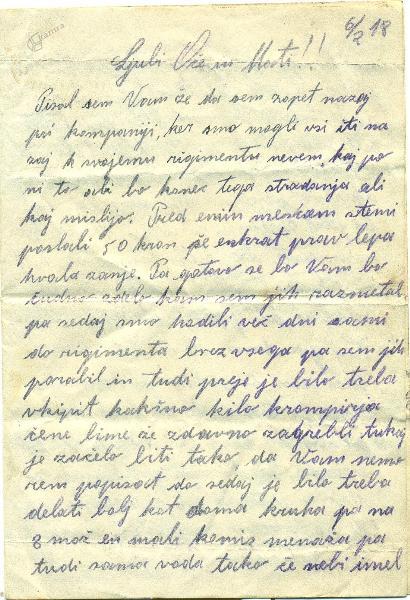 6/2 18
Ljubi Oče in Mati!!
Pisal sem Vam že da sem zopet nazaj
pri kompaniji, ker smo mogli vsi iti na
zaj k svojemu rigimentu nevem, kaj po
ni to ali bo konec tega stradanja ali
kaj mislijo. Pred enim mescam stemi
poslali 50 kron še enkrat prav lepa
hvala zanje. Pa gotovo se bo Vam bo
čudno zdelo kam sem jih razmetal
pa sedaj smo hodili več dni sami
do rigimenta brez vsega pa sem jih
porabil in tudi preje je bilo treba
vkipit kakšno kilo krompirja
če ne bi me že zdavno zagrebli tukaj
je začelo biti tako, da Vam nemo
rem popisat do sedaj je bilo treba
delati bolj kot doma kruha pa na
8 mož en mali komis menaža pa
tudi sama voda tako če nebi imel